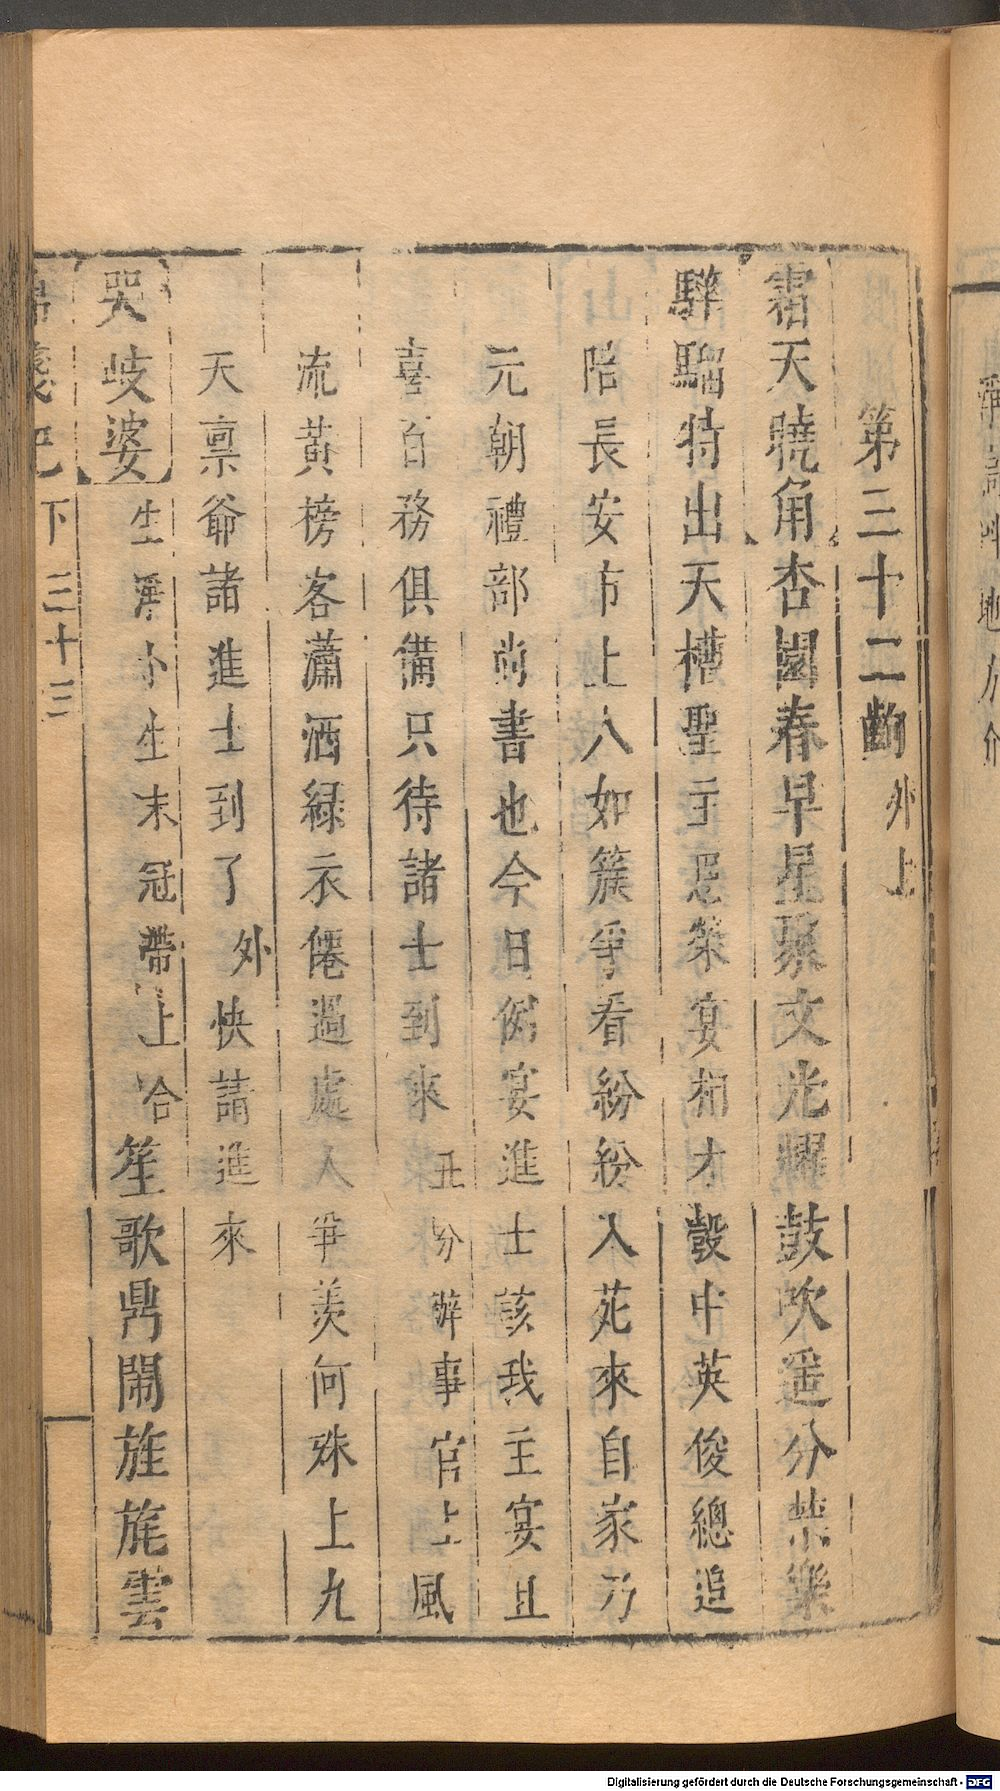 第三十二齣外上
霜天曉角杏園春早星聚文光耀鼓吹遥分禁樂
驊騮特出天槽聖主恩榮宴相才彀中英俊總追
陪長安市上人如簇爭看紛紛入苑來自家乃
元朝禮部尚書也今日瓊宴進士該我主宴且
喜百務俱備只待諸士到來丑分辦事官上風
流黃榜客瀟洒綠衣僊過處人爭羡何殊上九
天禀爺諸進士到了外快請進來
哭岐婆生淨小生末冠帶上合笙歌鼎閙旌旄雲
錦箋記下三十三
Digitalisierung gefördert durch die Deutsche Forschungsgemeinschaft - DFG